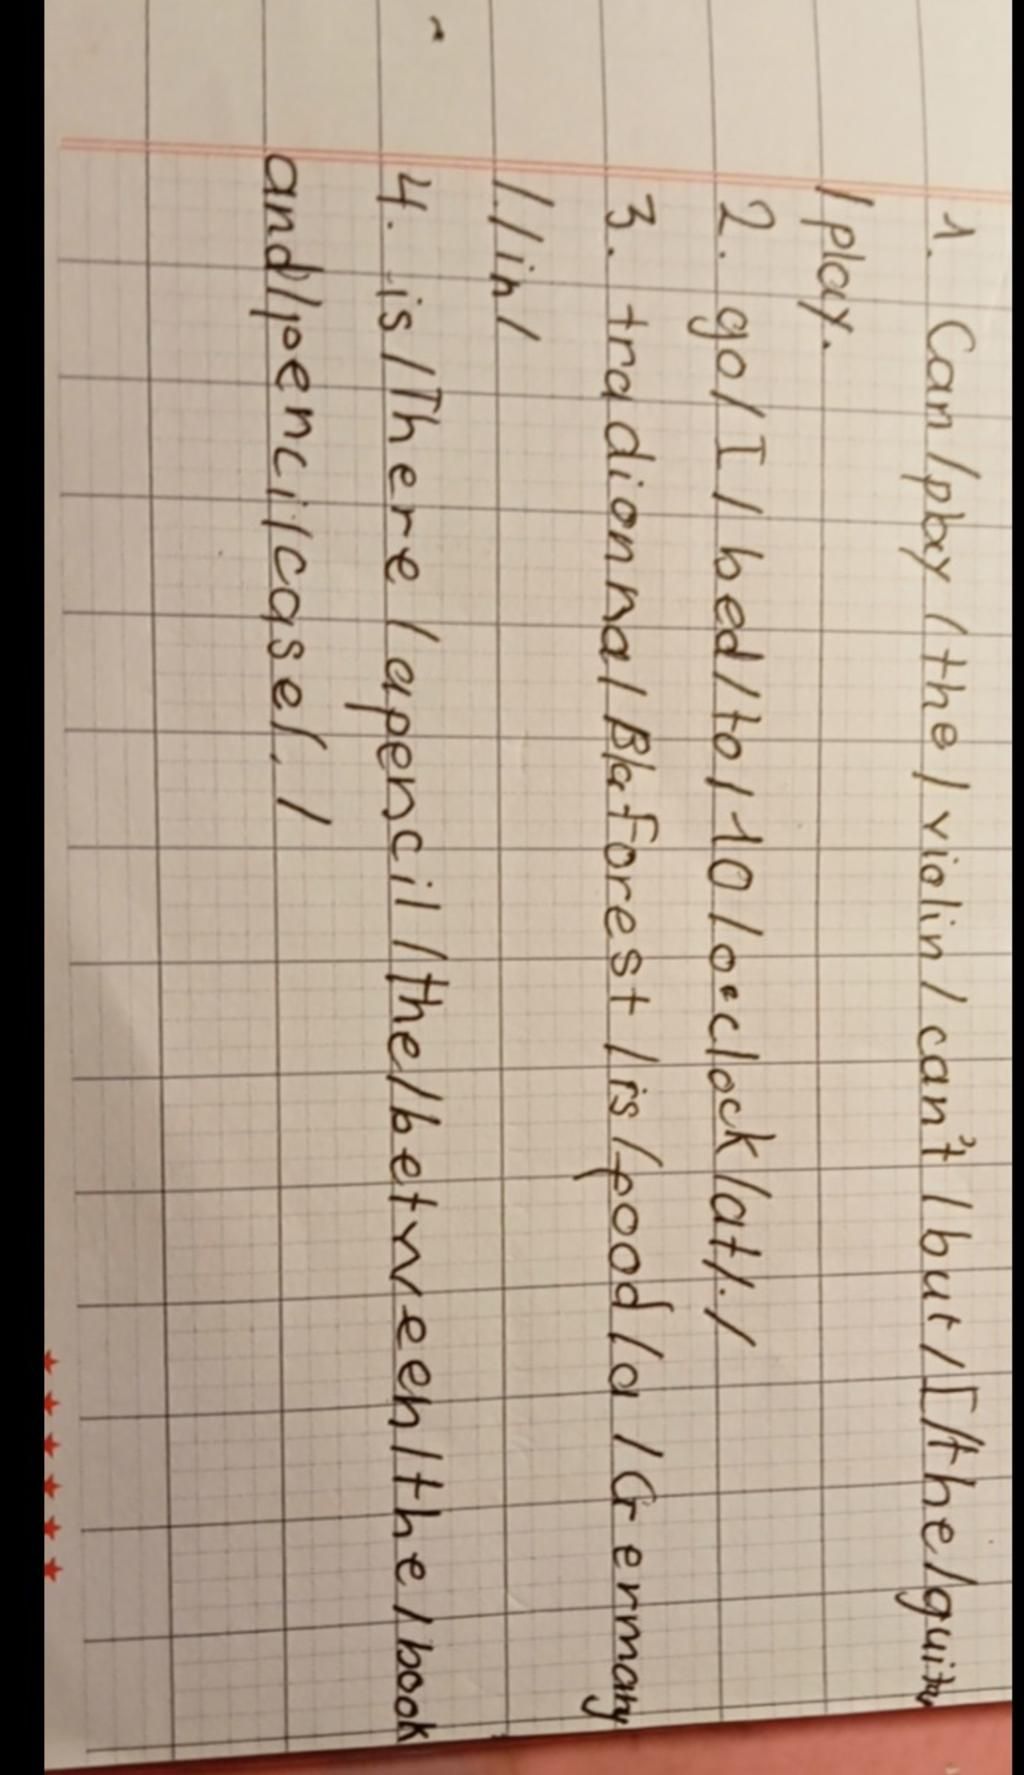 1. Can / play / the / violin / can't / but / I / the / guitar
/ play.
2. go / I / bed / to / 10 / o'clock / at / . /
3. tradionnal / Blaforest / is / food / a / Germany
/ . / in /
4. is / There / a pencil / the / between / the / book
and / pencilcase / . /